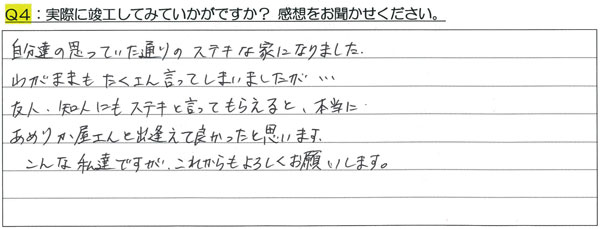 Q4：実際に竣工してみていかがですか？ 感想をお聞かせください。
自分達の思っていた通りの ステキな家になりました.
わがままも たくさん言ってしまいましたが …
友人・知人にも ステキと言ってもらえると、本当に
あめりか屋さんと出逢えて良かったと思います.
こんな私達ですが、これからもよろしくお願いします。